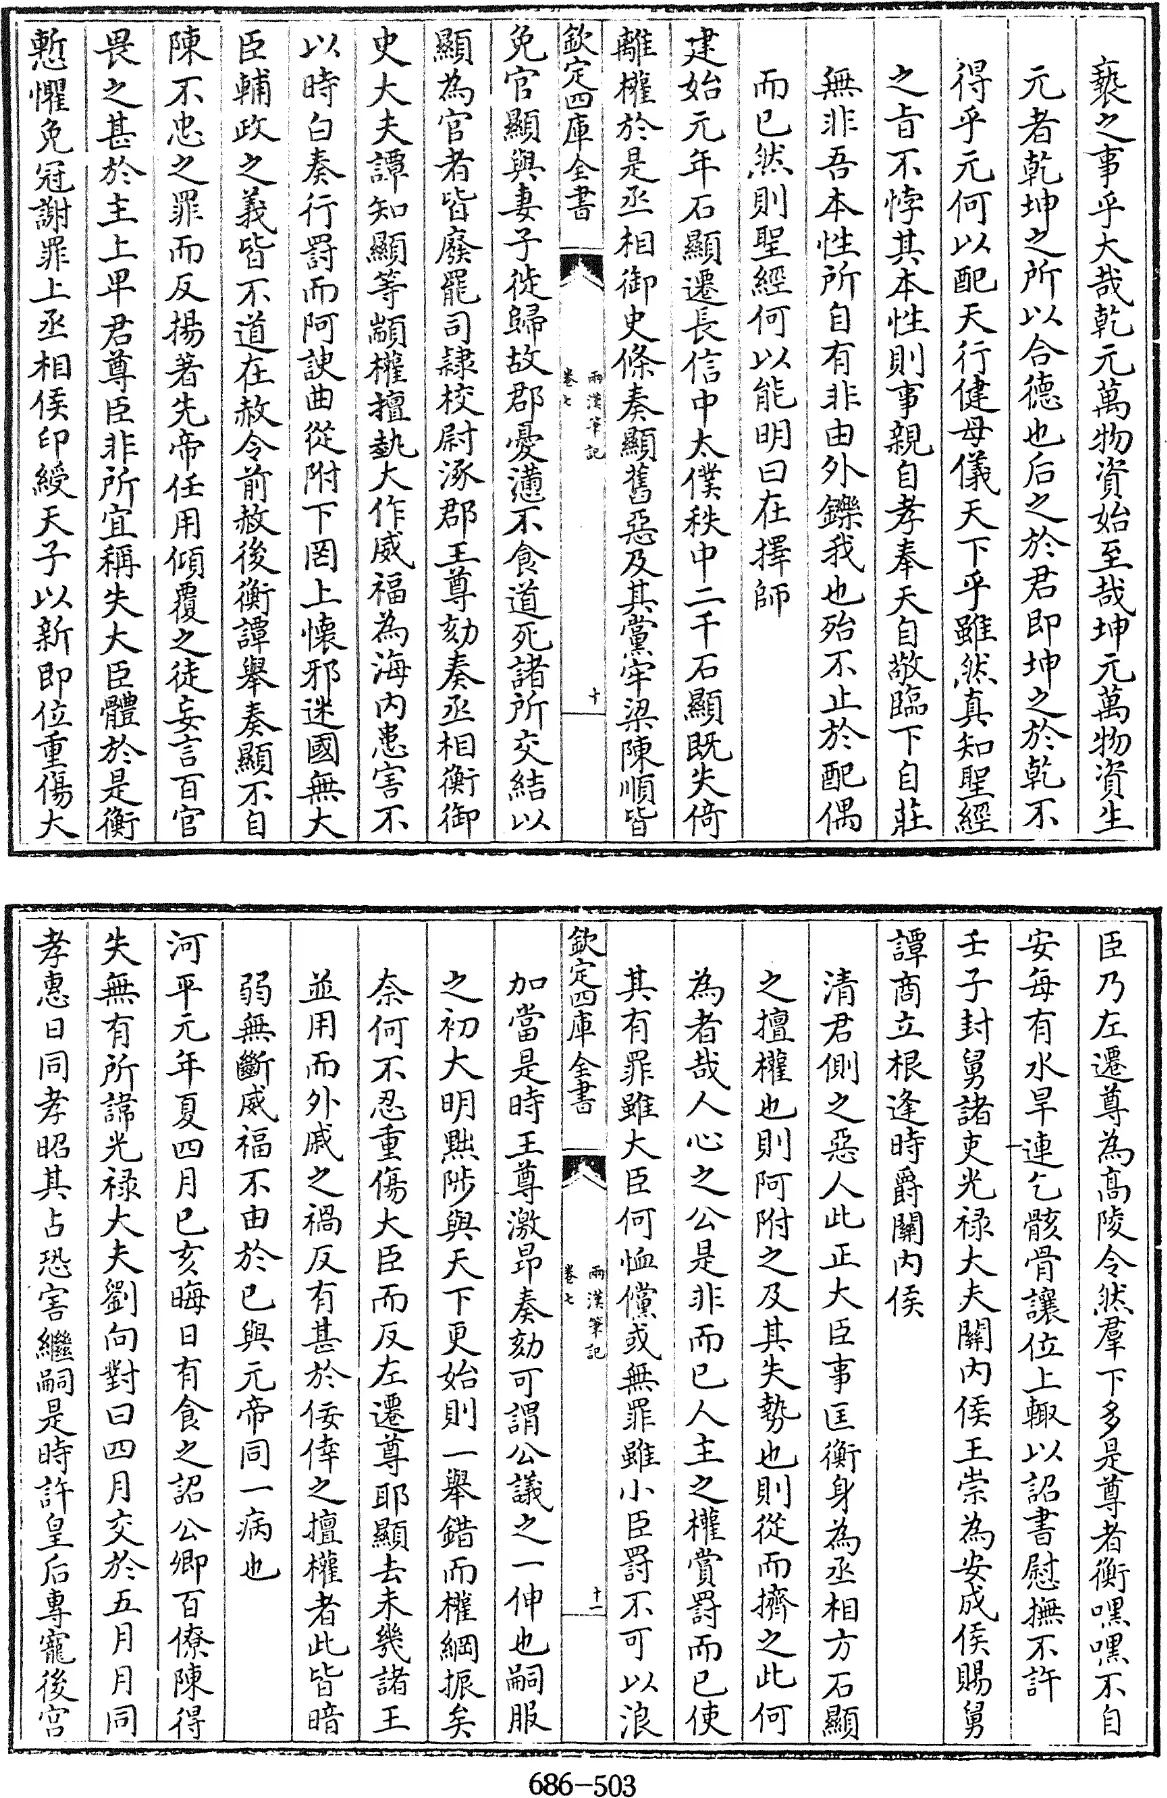 褻之事乎大哉乾元萬物資始至哉坤元萬物資生
元者乾坤之所以合德也后之於君即坤之於乾不
得乎元何以配天行健母儀天下乎雖然真知聖經
之旨不悖其本性則事親自孝奉天自敬臨下自莊
無非吾本性所自有非由外鑠我也殆不止於配偶
而已然則聖經何以能明曰在擇師
建始元年石顯遷長信中太僕秩中二千石顯既失倚
離權於是丞相御史條奏顯舊惡及其黨牢梁陳順皆
欽定四庫全書
兩漢筆記
卷七
十
免官顯與妻子徙歸故郡憂懣不食道死諸所交結以
顯為官者皆廢罷司隷校尉涿郡王尊劾奏丞相衡御
史大夫譚知顯等顓權擅埶大作威福為海內患害不
以時白奏行罰而阿諛曲從附下罔上懷邪迷國無大
臣輔政之義皆不道在赦令前赦後衡譚舉奏顯不自
陳不忠之罪而反揚著先帝任用傾覆之徒妄言百官
畏之甚於主上卑君尊臣非所宜稱失大臣體於是衡
慙懼免冠謝罪上丞相侯印綬天子以新即位重傷大
臣乃左遷尊為高陵令然羣下多是尊者衡嘿嘿不自
安每有水旱連乞骸骨讓位上輙以詔書慰撫不許
壬子封舅諸吏光禄大夫關內侯王崇為安成侯賜舅
譚商立根逢時爵關內侯
清君側之惡人此正大臣事匡衡身為丞相方石顯
之擅權也則阿附之及其失勢也則從而擠之此何
為者哉人心之公是非而已人主之權賞罸而已使
其有罪雖大臣何恤儻或無罪雖小臣罸不可以浪
欽定四庫全書
兩漢筆記
卷七
十一
加當是時王尊激昂奏劾可謂公議之一伸也嗣服
之初大明黜陟與天下更始則一舉錯而權綱振矣
奈何不忍重傷大臣而反左遷尊耶顯去未幾諸王
並用而外戚之禍反有甚於佞倖之擅權者此皆暗
弱無斷威福不由於已與元帝同一病也
河平元年夏四月已亥晦日有食之詔公卿百僚陳得
失無有所諱光禄大夫劉向對曰四月交於五月月同
孝惠日同孝昭其占恐害繼嗣是時許皇后專寵後宫
686-503